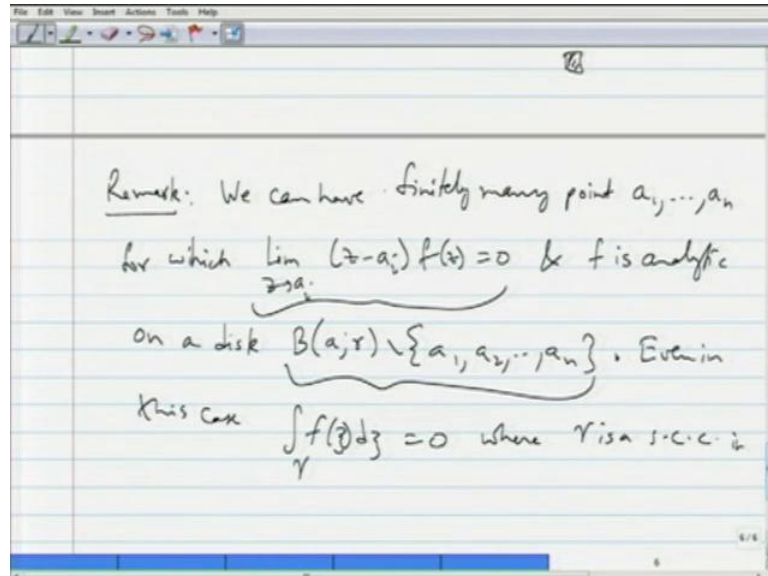 File Edit View Insert Actions Tools Help
Remark: We can have finitely many point a₁, ..., aₙ
for which Lim (z-aᵢ) f(z) = 0 & f is analytic
z→aᵢ
on a disk B(a;r) \ {a₁, a₂, ..., aₙ}. Even in
this case ∫ f(ʒ)dʒ = 0 where γ is a s.c.c. in
γ
6/6
6